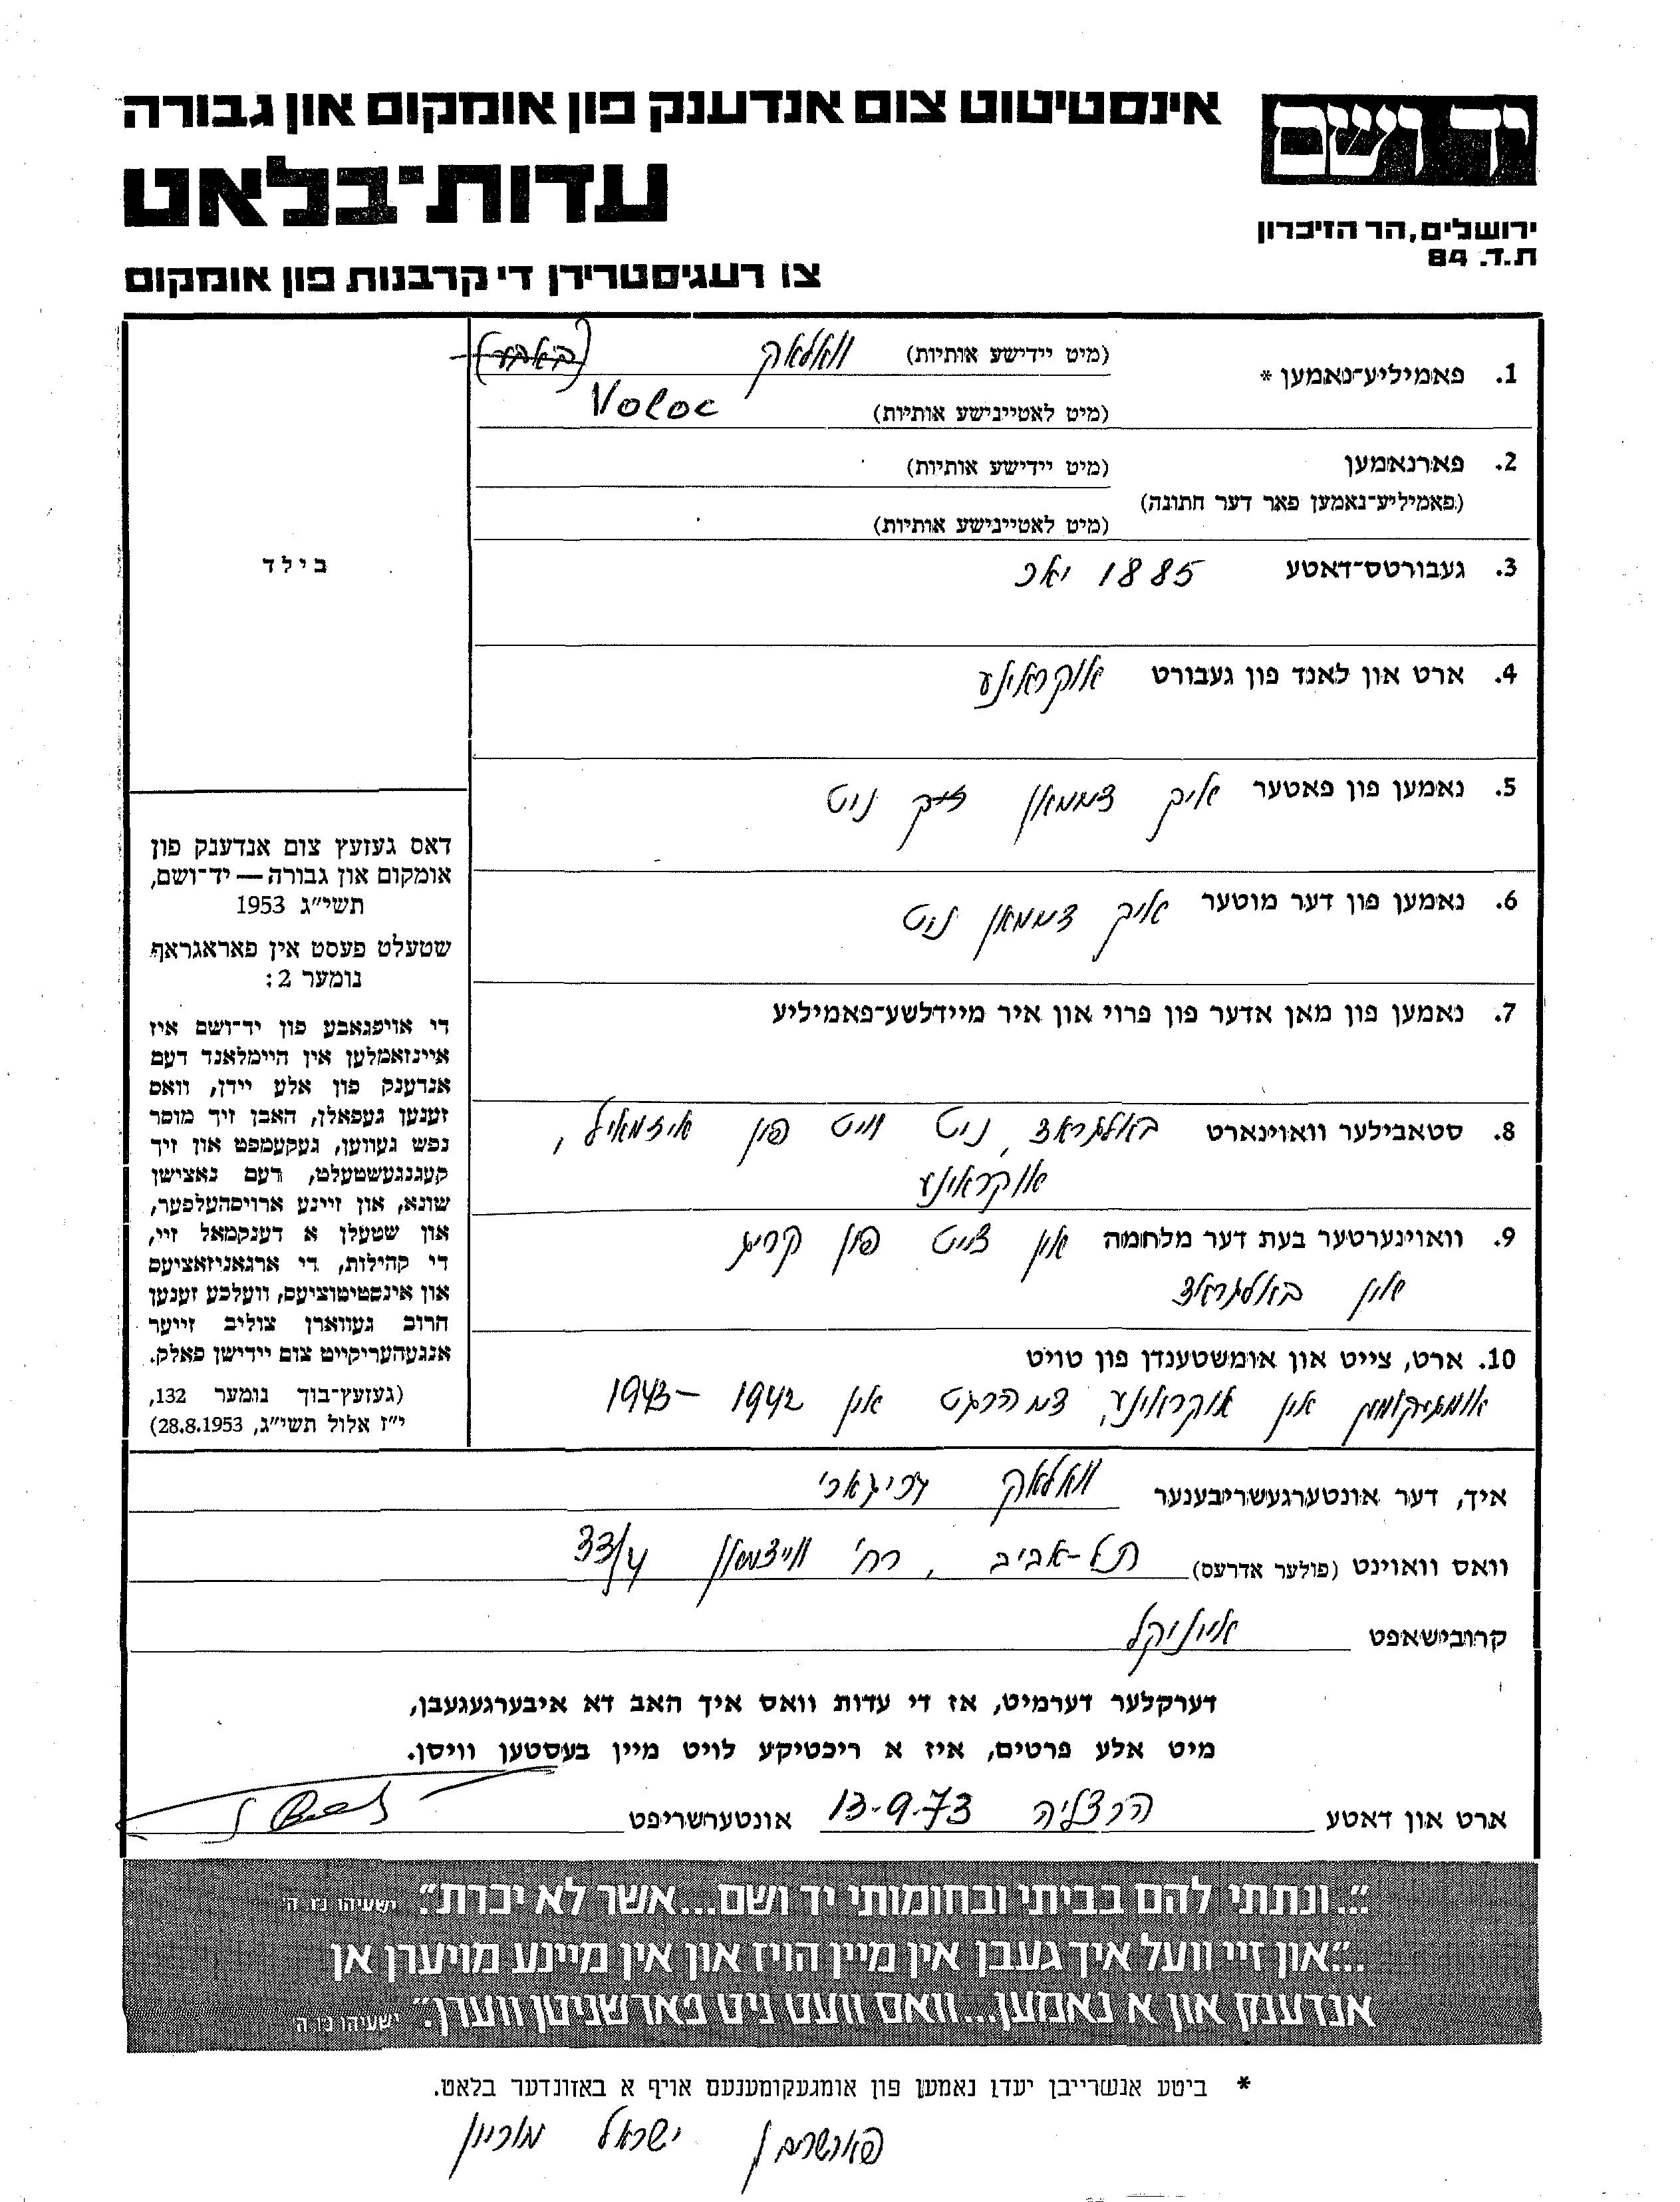 אינסטיטוט צום אנדענק פון אומקום און גבורה
יד ושם
עדות־בלאט
ירושלים, הר הזיכרון
ת.ד. 84
צו רעגיסטרירן די קרבנות פון אומקום
1. פאמיליע־נאמען * (מיט יידישע אותיות) וואלאק (באבע)
(מיט לאטיינישע אותיות) Voloc
2. פארנאמען (מיט יידישע אותיות)
(פאמיליע־נאמען פאר דער חתונה)
(מיט לאטיינישע אותיות)
3. געבורטס־דאטע 1885 יאר
4. ארט און לאנד פון געבורט אוקראינע
5. נאמען פון פאטער איך דערמאן זיך ניט
6. נאמען פון דער מוטער איך דערמאן ניט
7. נאמען פון מאן אדער פון פרוי און איר מיידלשע־פאמיליע
8. סטאבילער וואוינארט באלגראד, ניט ווייט פון איזמאיל,
אוקראינע
9. וואוינערטער בעת דער מלחמה אין צייט פון קריג
אין באלגראד
10. ארט, צייט און אומשטענדן פון טויט
אומגעקומען אין אוקראינע, דערהרגט אין 1942 – 1943
בילד
דאס געזעץ צום אנדענק פון
אומקום און גבורה — יד־ושם,
תשי"ג 1953
שטעלט פעסט אין פאראגראף
נומער 2:
די אויפגאבע פון יד־ושם איז
איינזאמלען אין היימלאנד דעם
אנדענק פון אלע יידן, וואס
זענען געפאלן, האבן זיך מוסר
נפש געווען, געקעמפט און זיך
קעגנגעשטעלט, דעם נאצישן
שונא, און זיינע ארויסהעלפער,
און שטעלן א דענקמאל זיי,
די קהילות, די ארגאניזאציעס
און אינסטיטוציעס, וועלכע זענען
חרוב געווארן צוליב זייער
אנגעהעריקייט צום יידישן פאלק.
(געזעץ־בוך נומער 132,
י"ז אלול תשי"ג, 28.8.1953)
איך, דער אונטערגעשריבענער וואלאק גריגארי
וואס וואוינט (פולער אדרעס) תל-אביב, רח' וייצמאן 33/4
קרובישאפט אייניקל
דערקלער דערמיט, אז די עדות וואס איך האב דא איבערגעגעבן,
מיט אלע פרטים, איז א ריכטיקע לויט מיין בעסטען וויסן.
ארט און דאטע הרצליה 13.9.73 אונטערשריפט
"..ונתתי להם בביתי ובחומותי יד ושם...אשר לא יכרת". ישעיהו נו. ה'
"..און זיי וועל איך געבן אין מיין הויז און אין מיינע מויערן אן
אנדענק און א נאמען...וואס וועט ניט פארשניטן ווערן". ישעיהו נו. ה'
* ביטע אנשרייבן יעדן נאמען פון אומגעקומענעם אויף א באזונדער בלאט.
ישראל